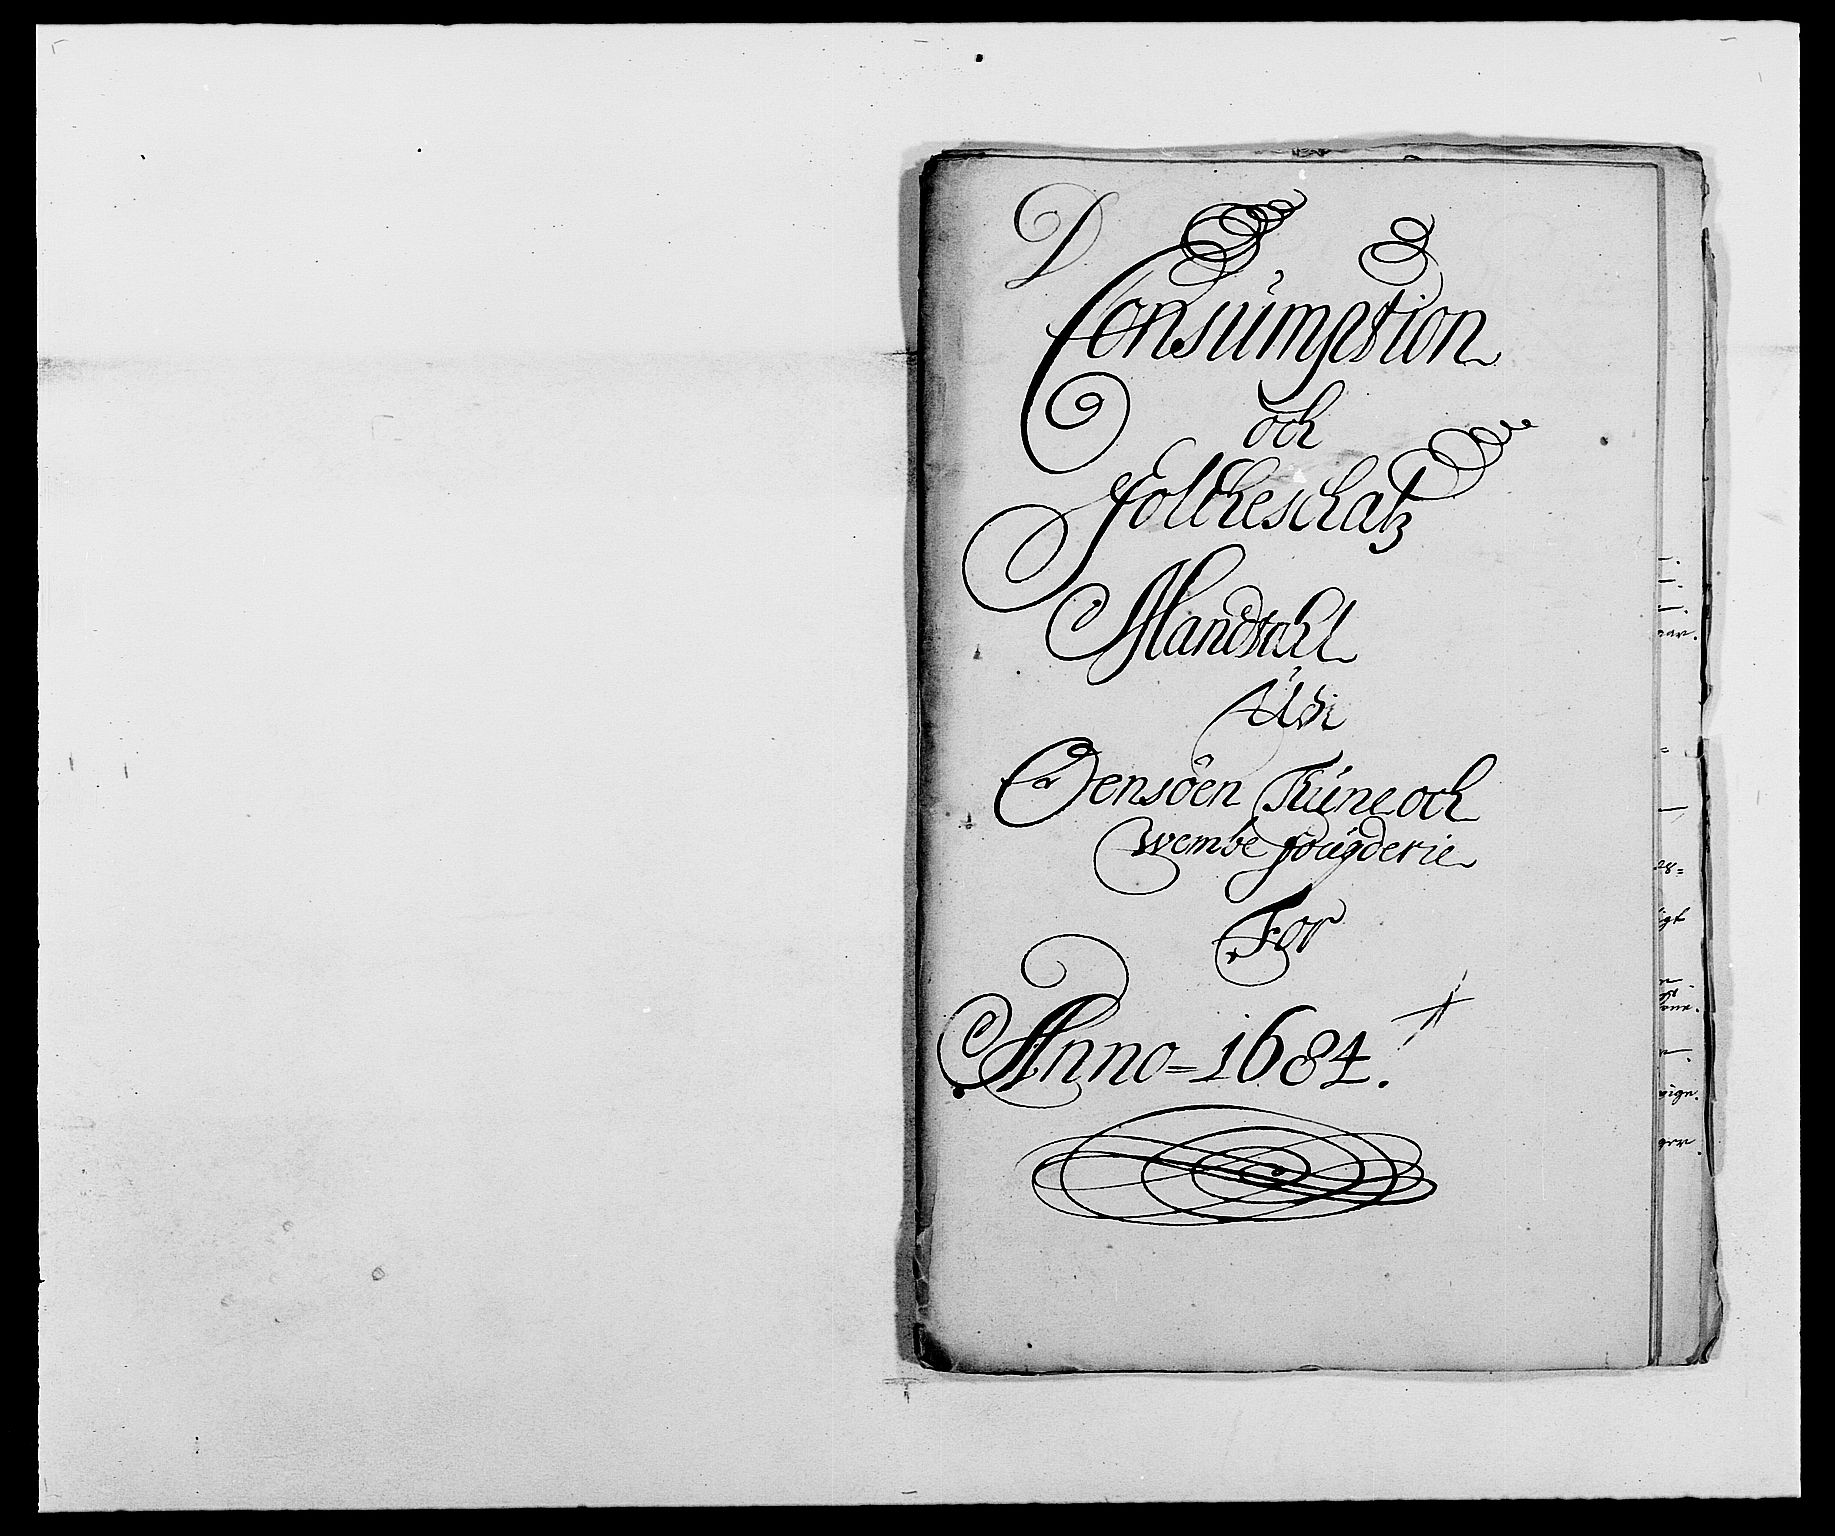 D
Consumption
och
folcheschatz
Mandtahl
Udi
Oensöen Tune och
wembe fougderie
For
Anno = 1684.
28=